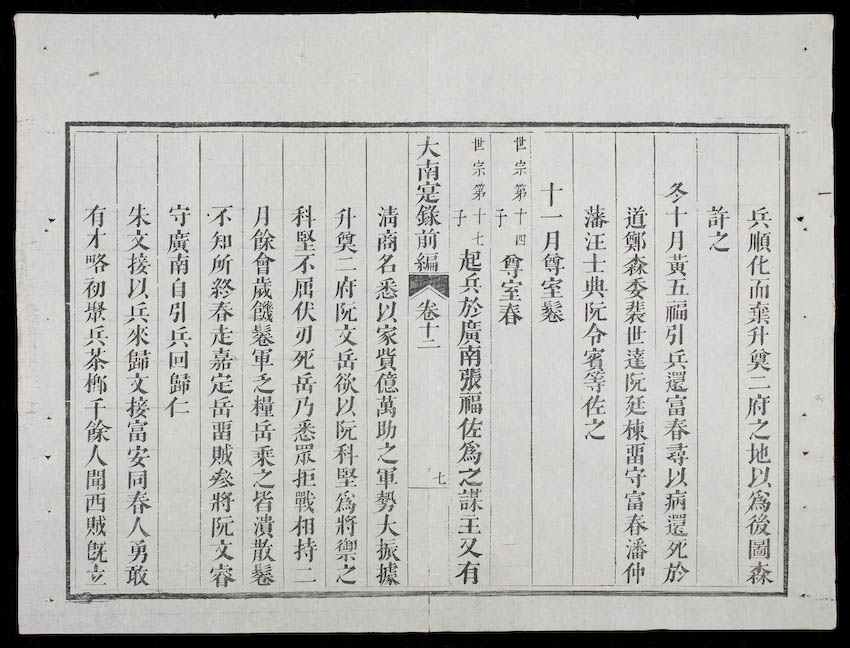 兵順化而棄升奠二府之地以爲後圖森
許之
冬十月黃五福引兵還富春尋以病還死於
道鄭森委裴世達阮廷棟畱守富春潘仲
藩汪士典阮令賓等佐之
十一月尊室鬈
世宗第十四子尊室春
世宗第十七子起兵於廣南張福佐爲之謀王又有
大南寔錄前編 卷十二 七
淸商名悉以家貲億萬助之軍勢大振據
升奠二府阮文岳欲以阮科堅爲將禦之
科堅不屈伏刃死岳乃悉眾拒戰相持二
月餘會歲饑鬈軍乏糧岳乘之皆潰散鬈
不知所終春走嘉定岳畱賊參將阮文睿
守廣南自引兵回歸仁
朱文接以兵來歸文接富安同春人勇敢
有才略初聚兵茶榔千餘人聞西賊旣立